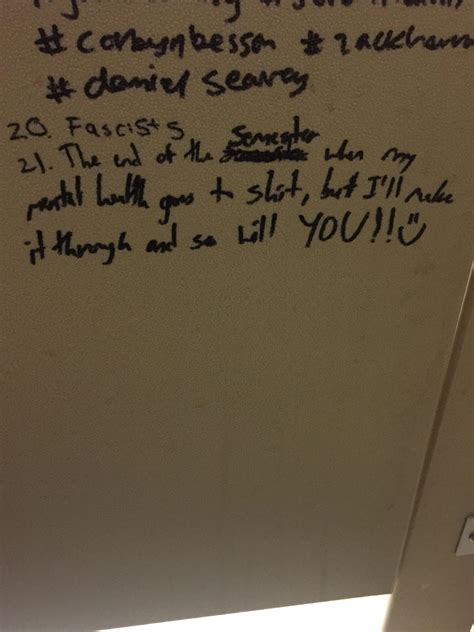 #corbynbesson #zackherron
#daniel seavey
20. Fascists
21. The end of the Semester when my
mental health goes to shit, but I'll make
it through and so will YOU!!